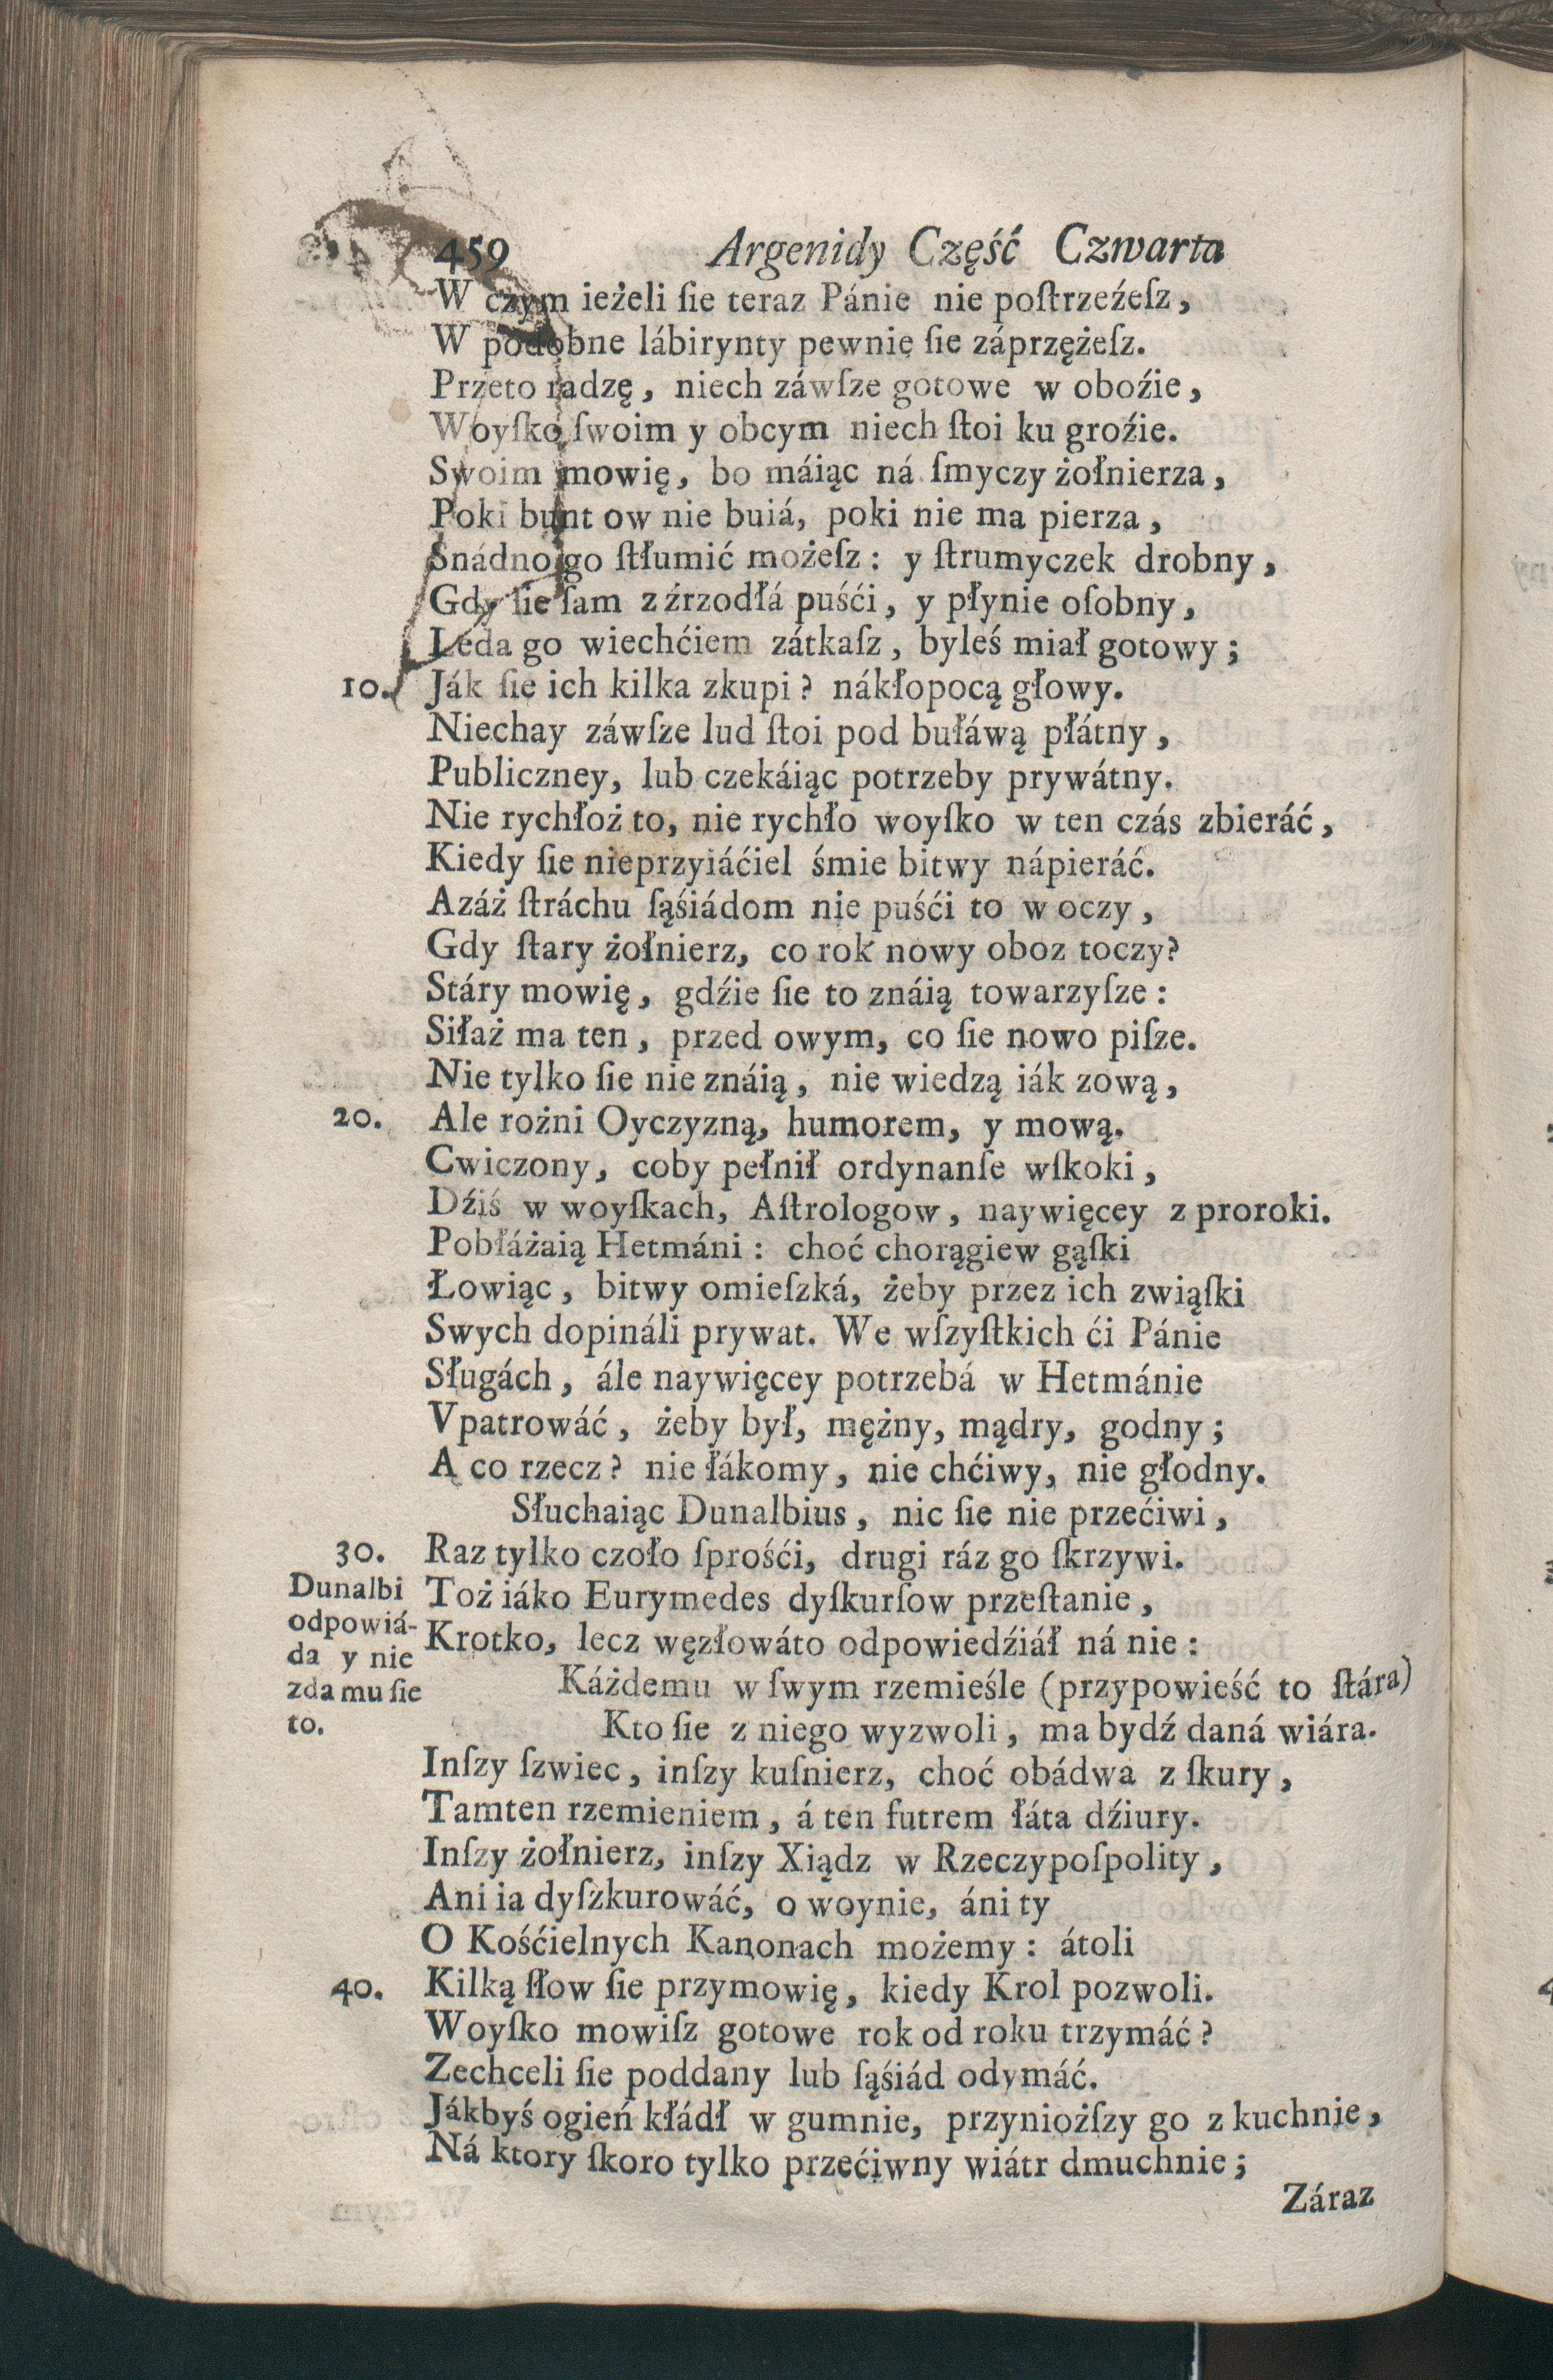 459 Argenidy Część Czwarta
W czym ieżeli ſie teraz Pánie nie poſtrzeźeſz,
W podobne lábirynty pewnie ſie záprzężeſz.
Przeto radzę, niech záwſze gotowe w oboźie,
Woyſko ſwoim y obcym niech ſtoi ku groźie.
Swoim mowię, bo máiąc ná ſmyczy żołnierza,
Poki bunt ow nie buiá, poki nie ma pierza,
Snádno go ſtłumić możeſz: y ſtrumyczek drobny,
Gdy ſie ſam z źrzodłá puśći, y płynie oſobny,
Leda go wiechćiem zátkaſz, byleś miał gotowy;
10. Ják ſie ich kilka zkupi? nákłopocą głowy.
Niechay záwſze lud ſtoi pod bułáwą płátny,
Publiczney, lub czekáiąc potrzeby prywátny.
Nie rychłoż to, nie rychło woyſko w ten czás zbieráć,
Kiedy ſie nieprzyiáćiel śmie bitwy nápieráć.
Azáż ſtráchu ſąśiádom nie puśći to w oczy,
Gdy ſtary żołnierz, co rok nowy oboz toczy?
Stáry mowię, gdźie ſie to znáią towarzyſze:
Siłaż ma ten, przed owym, co ſie nowo piſze.
Nie tylko ſie nie znáią, nie wiedzą iák zową,
20. Ale rożni Oyczyzną, humorem, y mową.
Cwiczony, coby pełnił ordynanſe wſkoki,
Dźiś w woyſkach, Aſtrologow, naywięcey z proroki.
Pobłáżaią Hetmáni: choć chorągiew gąſki
Łowiąc, bitwy omieſzká, żeby przez ich związki
Swych dopináli prywat. We wſzyſtkich ći Pánie
Sługách, ále naywięcey potrzebá w Hetmánie
Vpatrowáć, żeby był, mężny, mądry, godny;
A co rzecz? nie łákomy, nie chćiwy, nie głodny.
Słuchaiąc Dunalbius, nic ſie nie przećiwi,
30. Raz tylko czoło ſprośći, drugi ráz go ſkrzywi.
Dunalbi
odpowiá-
da y nie
zda mu ſie
to.
Toż iáko Eurymedes dyſkurſow przeſtanie,
Krotko, lecz węzłowáto odpowiedźiáł ná nie:
Káżdemu w ſwym rzemieśle (przypowieść to ſtára)
Kto ſie z niego wyzwoli, ma bydź daná wiára.
Inſzy ſzwiec, inſzy kuſnierz, choć obádwa z ſkury,
Tamten rzemieniem, á ten futrem łáta dźiury.
Inſzy żołnierz, inſzy Xiądz w Rzeczypoſpolity,
Ani ia dyſzkurowáć, o woynie, áni ty
O Kośćielnych Kanonach możemy: átoli
40. Kilką ſłow ſie przymowię, kiedy Krol pozwoli.
Woyſko mowiſz gotowe rok od roku trzymáć?
Zechceli ſie poddany lub ſąśiád odymáć.
Jákbyś ogień kłádł w gumnie, przyniożſzy go z kuchnie,
Ná ktory ſkoro tylko przećiwny wiátr dmuchnie;
Záraz